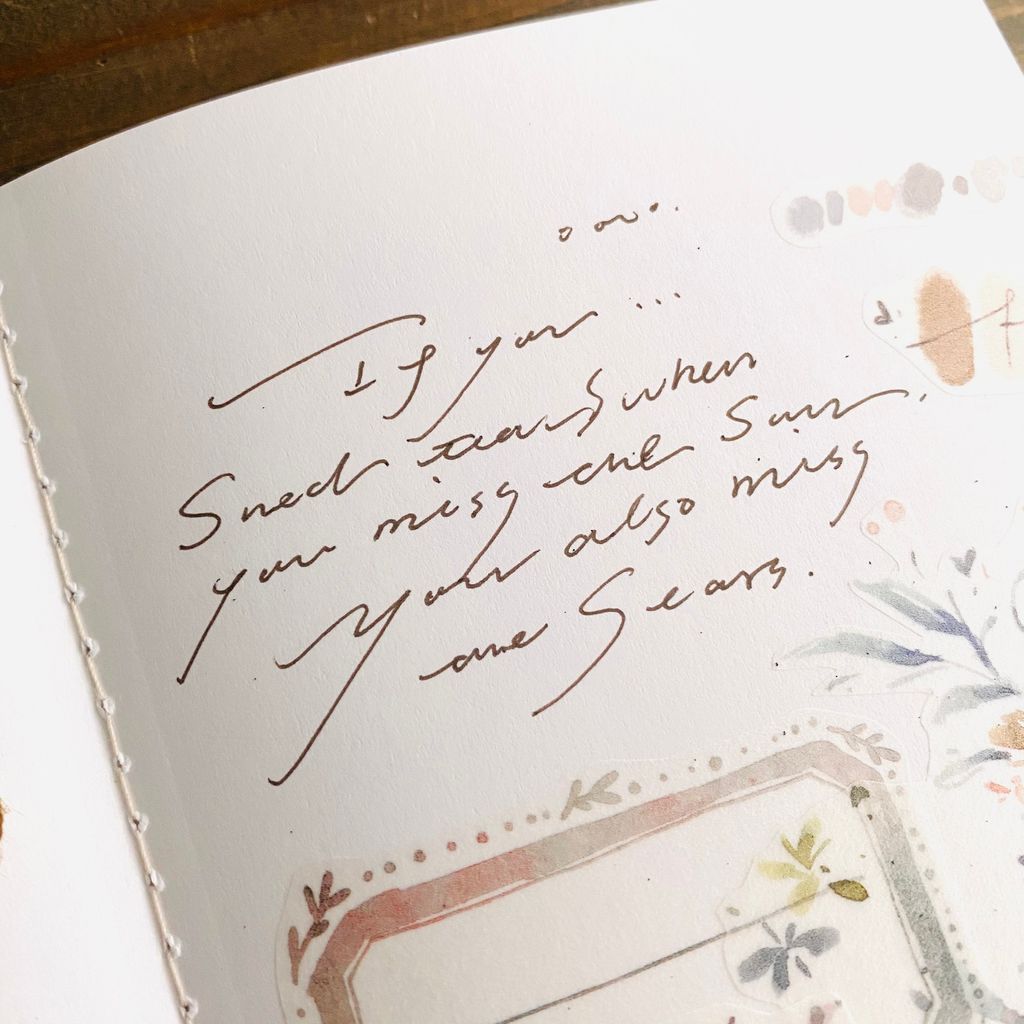 If you ...
Shed tears when
you miss the Sun,
You also miss
the Stars.